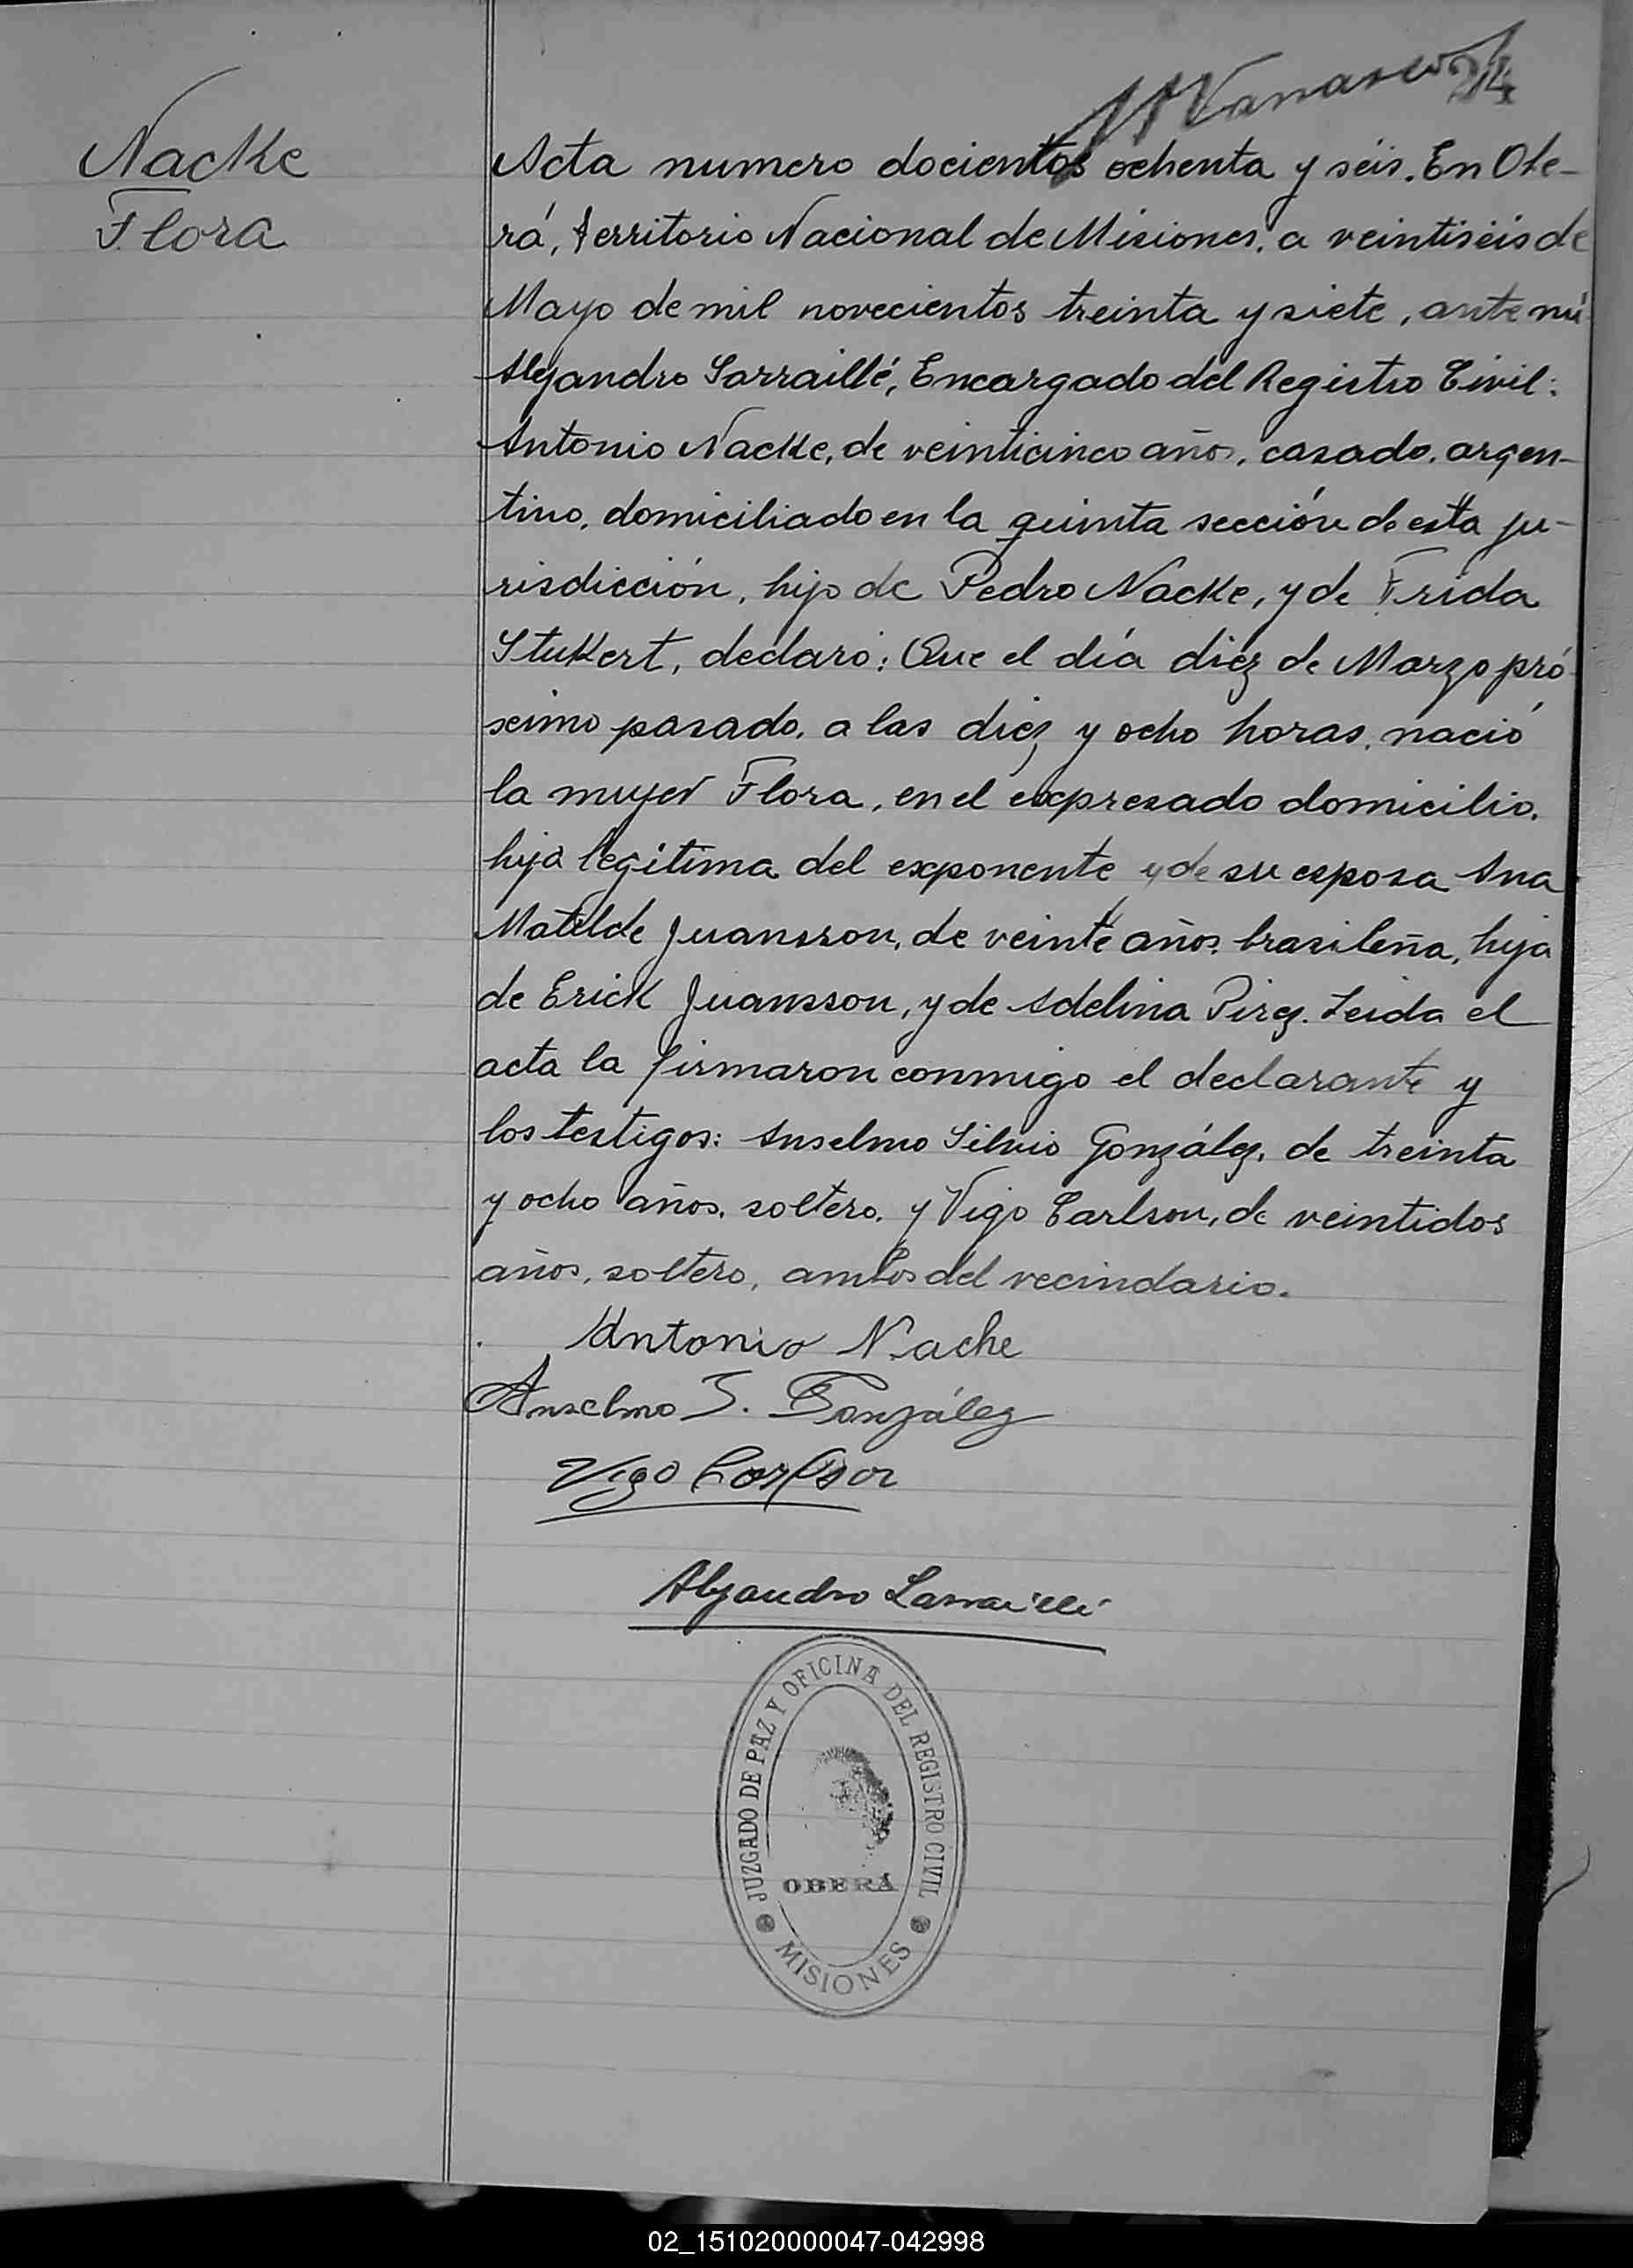 24
Nacke
Flora
Acta numero docientos ochenta y séis. En Obe-
rá, territorio Nacional de Misiones, a veintiséis de
Mayo de mil novecientos treinta y siete, ante mi
Alejandro Sarraillé, Encargado del Registro Civil:
Antonio Nacke, de veinticinco años, casado, argen-
tino, domiciliado en la quinta sección de esta ju-
risdicción, hijo de Pedro Nacke, y de Frida
Stukert, declaró: Que el día diez de Marzo pró
ximo pasado, a las diez y ocho horas, nació
la mujer Flora, en el expresado domicilio,
hija legítima del exponente y de su esposa Ana
Matilde Juansson, de veinte años, brasileña, hija
de Erick Juansson, y de Adelina Pirez. Leida el
acta la firmaron conmigo el declarante y
los testigos: Anselmo Silvio González, de treinta
y ocho años, soltero, y Vigo Carlson, de veintidos
años, soltero, ambos del vecindario.
Antonio Nacke
Anselmo S. González
Vigo Carlson
Alejandro Sarraillé
JUZGADO DE PAZ Y OFICINA DEL REGISTRO CIVIL
OBERÁ
MISIONES
02_151020000047-042998